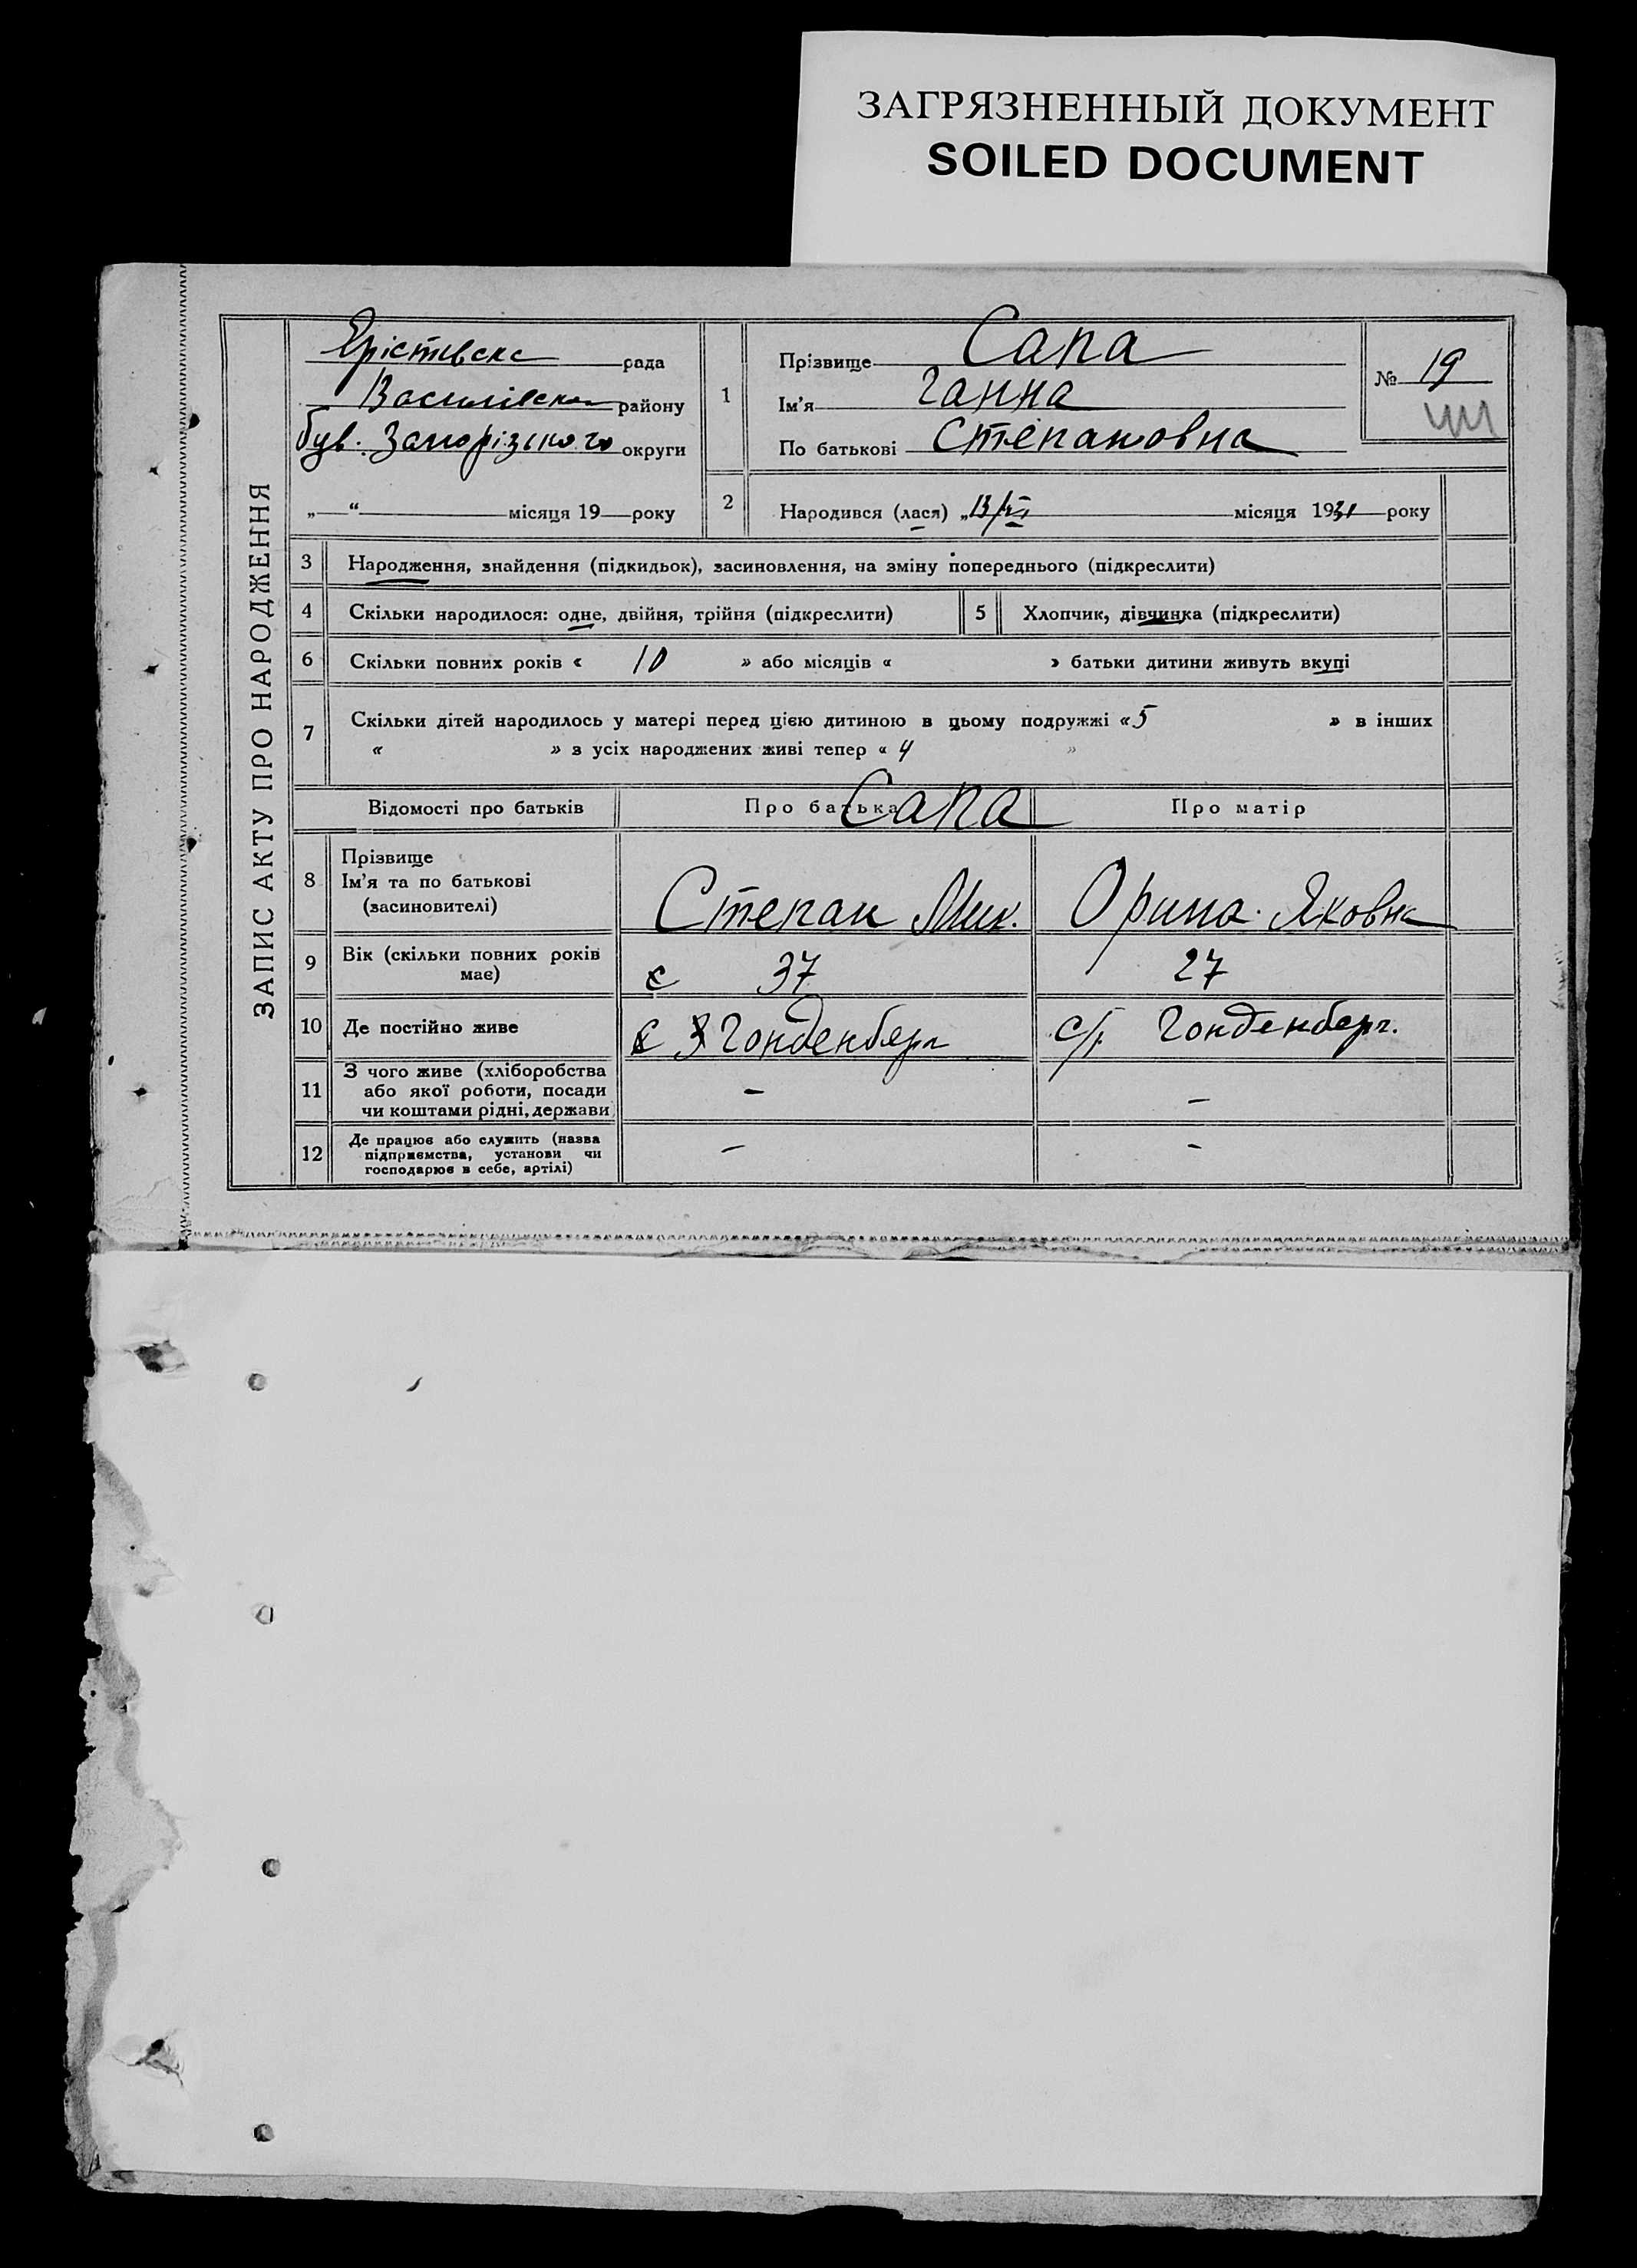 ЗАГРЯЗНЕННЫЙ ДОКУМЕНТ
SOILED DOCUMENT
ЗАПИС АКТУ ПРО НАРОДЖЕННЯ
Єрістівска рада
Василівськ району
був. Запорізького округи
„—“ місяця 19 року
1
Прізвище Сапа
Ім'я Ганна
По батькові Степановна
№ 19
2
Народився (лася) „13/VI місяця 1931 року
3 Народження, знайдення (підкидьок), засиновлення, на зміну попереднього (підкреслити)
4 Скільки народилося: одне, двійня, трійня (підкреслити) 5 Хлопчик, дівчинка (підкреслити)
6 Скільки повних років « 10 » або місяців « » батьки дитини живуть вкупі
7 Скільки дітей народилось у матері перед цією дитиною в цьому подружжі « 5 » в інших
« » з усіх народжених живі тепер « 4 »
Відомості про батьків Про батька Про матір
Сапа
8 Прізвище
Ім'я та по батькові
(засиновителі)
Степан Мик. Орина Яковна
9 Вік (скільки повних років
має)
37 27
10 Де постійно живе Гонденберг с/г Гонденберг.
11 З чого живе (хліборобства
або якої роботи, посади
чи коштами рідні, держави)
– –
12 Де працює або служить (назва
підприємства, установи чи
господарює в себе, артілі)
– –